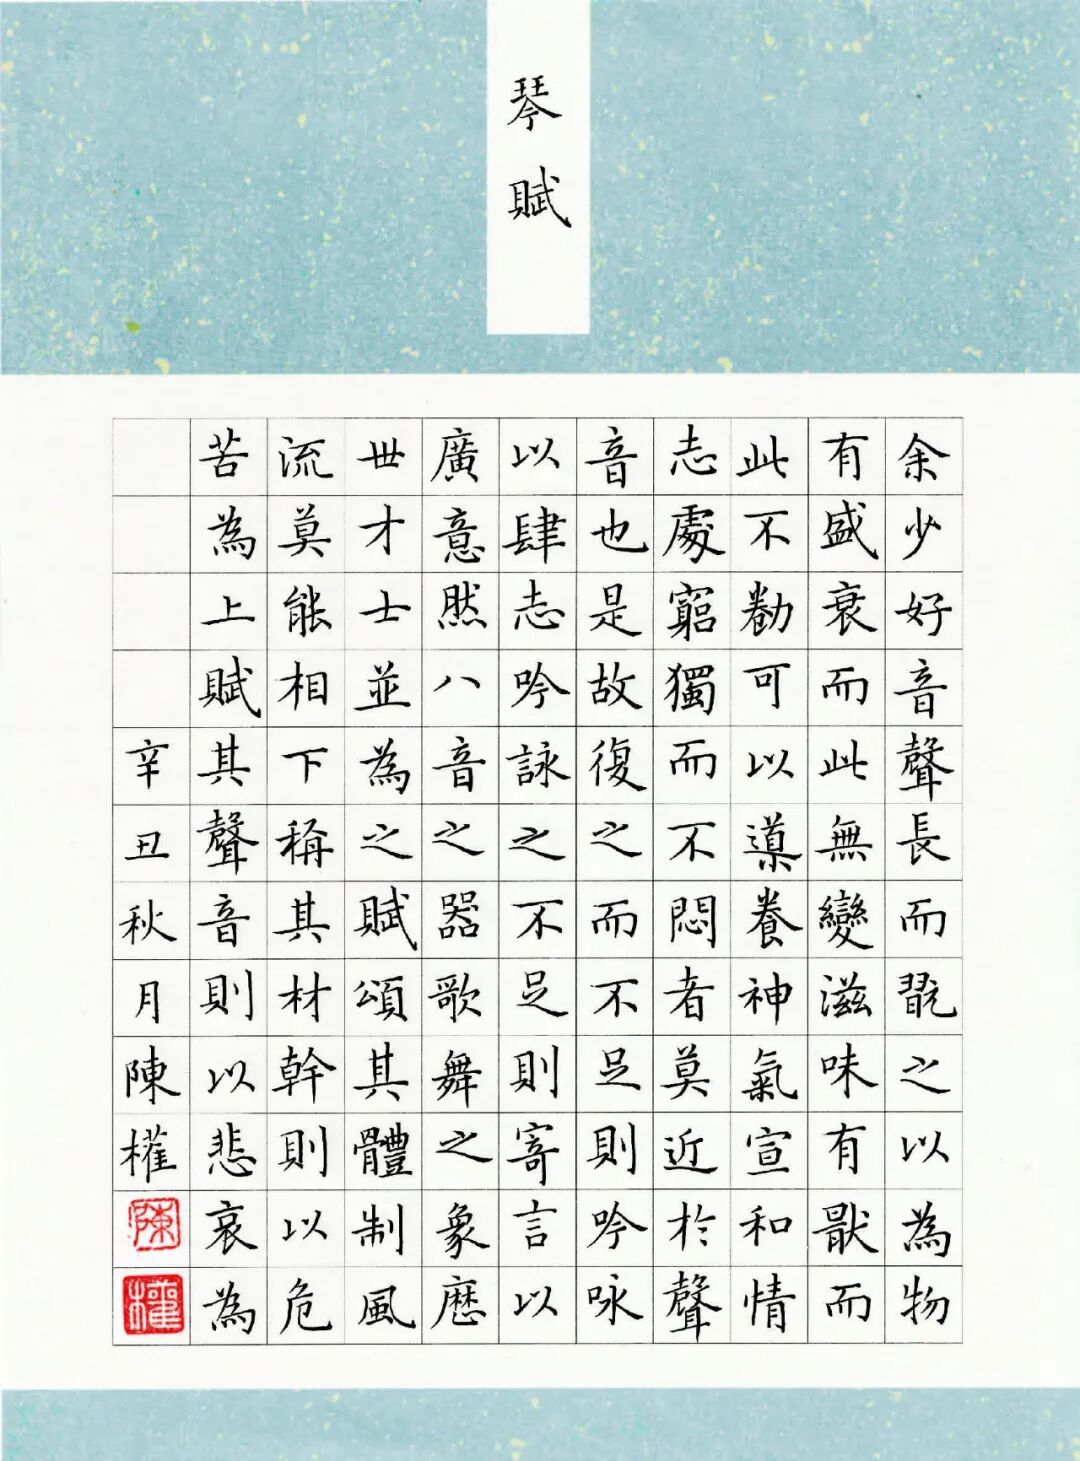 琴賦
余少好音聲長而翫之以為物
有盛衰而此無變滋味有猒而
此不勌可以導養神氣宣和情
志處窮獨而不悶者莫近於聲
音也是故復之而不足則吟咏
以肆志吟詠之不足則寄言以
廣意然八音之器歌舞之象歷
世才士並為之賦頌其體制風
流莫能相下稱其材幹則以危
苦為上賦其聲音則以悲哀為
辛丑秋月陳權
陳
權